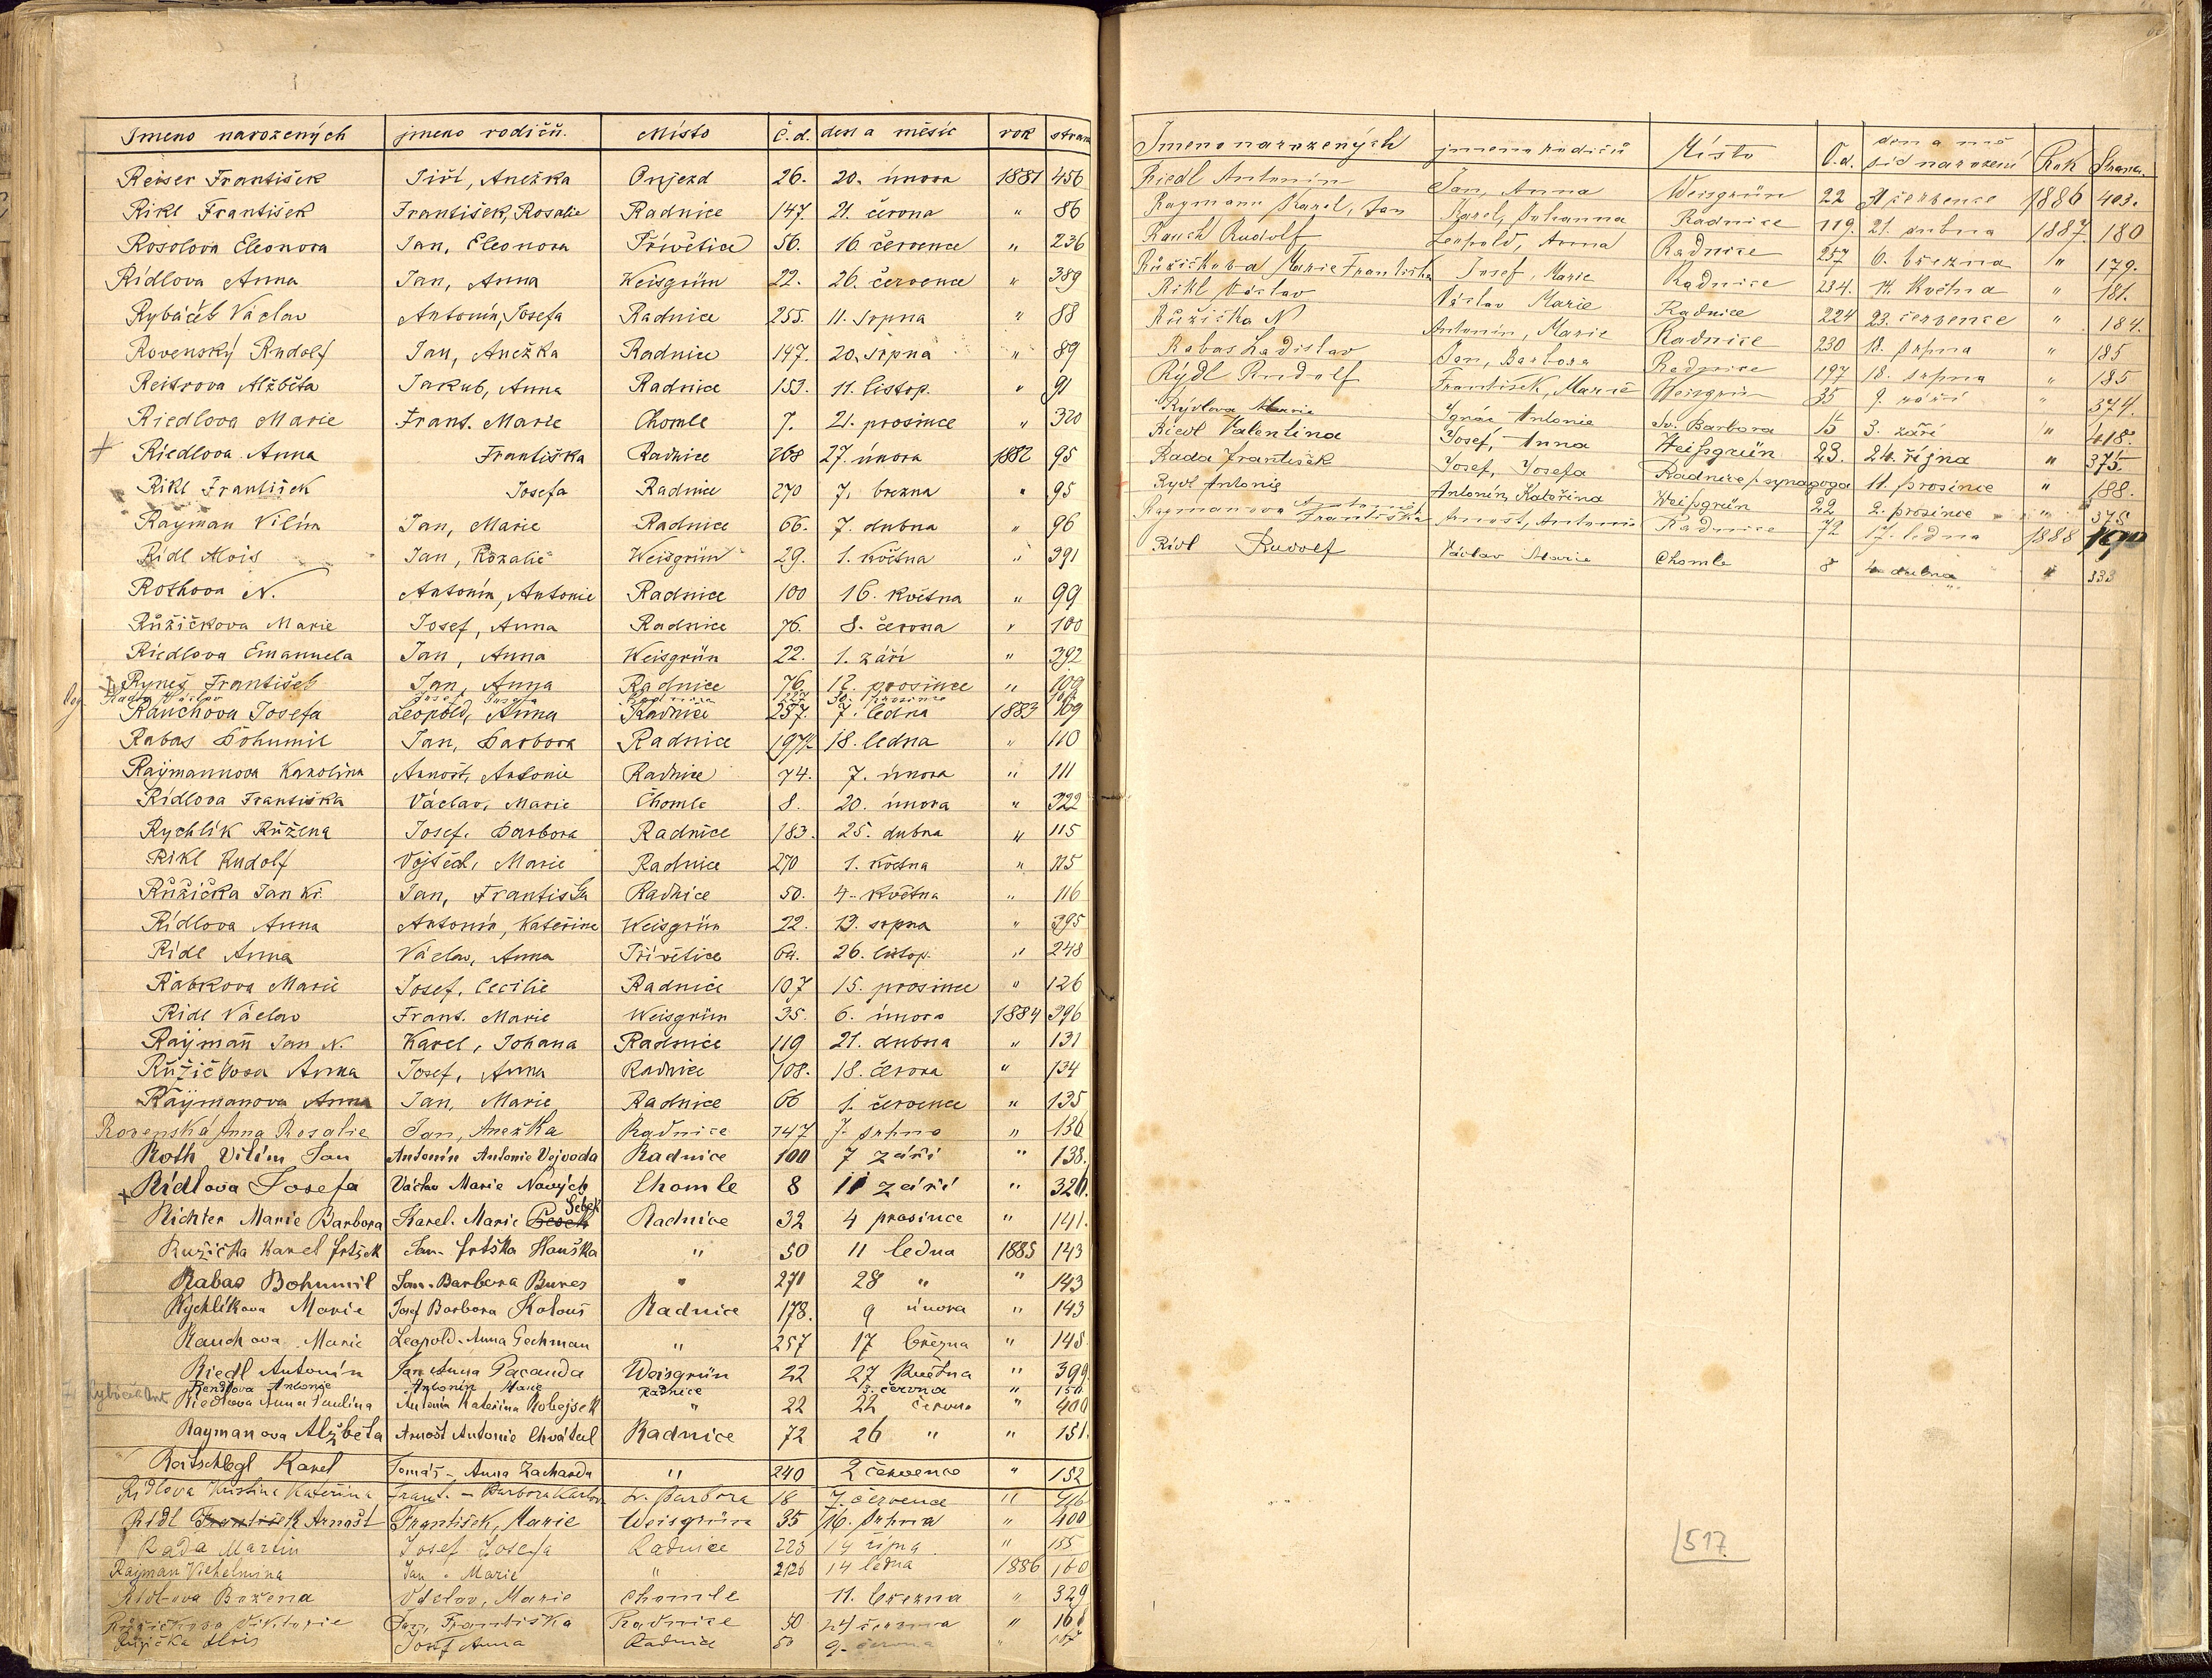 Jmeno narozených jmeno rodičů. Místo č.d. den a měsíc rok stran
Reiser František Jiří, Anežka Onjezd 26. 20. února 1881 456
Rikl František František, Rosalie Radnice 147. 21. června " 86
Rosolova Eleonora Jan, Eleonora Přívětice 56. 16 července " 236
Rídlova Anna Jan, Anna Weisgrün 22. 26. července " 389
Rybáček Václav Antonín, Josefa Radnice 255. 11. srpna " 88
Rovenský Rudolf Jan, Anežka Radnice 147. 20. srpna " 89
Reitrova Alžběta Jakub, Anna Radnice 153. 11. listop. " 91
Riedlova Marie Frant. Marie Chomle 7. 21. prosince " 320
Riedlova Anna Františka Radnice 268 27. února 1882 95
Rikl František Josefa Radnice 270 7. brezna " 95
Rayman Vilím Jan, Marie Radnice 66. 7. dubna " 96
Rídl Alois Jan, Rozalie Weisgrün 29. 1. května " 391
Rothova N. Antonín, Antonie Radnice 100 16. května " 99
Růžičkova Marie Josef, Anna Radnice 76. 8. června " 100
Riedlova Emanuela Jan, Anna Weisgrün 22. 1. září " 392
Ryneš František Jan, Anna Radnice 76. 12. prosince " 109
Rada Václav Josef Josefa Radnice 30. prosince
Rauchova Josefa Leopold, Anna Radnice 257. 7. ledna 1883 109
Rabas Bohumil Jan, Barbora Radnice 197 18. ledna " 110
Raymannova Karolina Arnošt, Antonie Radnice 74. 7. února " 111
Rídlova Františka Václav, Marie Chomle 8. 20. února " 322
Rychlík Růžena Josef, Barbora Radnice 183. 25. dubna " 115
Rikl Rudolf Vojtěch, Marie Radnice 270 1. května " 115
Růžička Jan Jan, Františka Radnice 50. 4. května " 116
Rídlova Anna Antonín, Kateřina Weisgrün 22. 13. srpna " 395
Rídl Anna Václav, Anna Přívětice 64. 26. listop. " 248
Rabkova Marie Josef, Cecilie Radnice 107 15. prosince " 126
Rídl Václav Frant. Marie Weisgrün 35. 6. února 1884 396
Rayman Jan N. Karel, Johana Radnice 119 21. dubna " 131
Růžičkova Anna Josef, Anna Radnice 108. 18. června " 134
Raymanova Anna Jan, Marie Radnice 66 1. července " 135
Rovenská Anna Rosalie Jan, Anežka Radnice 147 7. srpna " 136
Roth Vilím Jan Antonín Antonie Vojvoda Radnice 100 7 září " 138.
Rídlova Josefa Václav Marie Nových Chomle 8 11 září " 326.
Richter Marie Barbora Karel. Marie Šebek Radnice 32 4 prosince " 141.
Ružička Karel frtšek Jan. frtška Hauška " 50 11 ledna 1885 143
Rabas Bohumil Jan. Barbora Bures " 271 28 " " 143
Rychlíkova Marie Josef Barbora Kolouš Radnice 178. 9 února " 143
Rauchova Marie Leopold. Anna Gechman " 257 17 března " 148
Riedl Antonín Jan Anna Pacanda Weisgrün 22 27 května " 399
Rendlova Antonie Antonín Marie Radnice 3. června " 150
Riedlova Anna Paulina Antonín Kateřina Kobejsek " 22 22 června " 400
Raymanova Alžběta Arnošt Antonie Chvátal Radnice 72 26 " " 151.
Reitschlegl Karel Tomáš - Anna Zacharda " 240 2 července " 152
Ridlova Kristina Kateřina Frant. - Barbora sv. Barbora 18 7. července " 416
Rídl Arnošt František, Marie Weisgrün 35 16. srpna " 400
Rada Martin Josef Josefa Radnice 223 14 října " 155
Rayman Vilhelmina Jan - Marie " 14 ledna 1886 160
Ridlova Božena Václav, Marie Chomle 11. března " 329
Růžičkova Viktorie Jan, Františka Radnice 50 24 června " 168
Růžička Alois Josef Anna Radnice 50 9. června "
Jmeno narozených jmena rodičů Místo Č.d. den a měsíc narození Rok Strana.
Riedl Antonín Jan, Anna Weisgrün 22 července 1886 403.
Raymann Karel, Jan Karel, Johanna Radnice 119. 21. dubna 1887. 180
Rauch Rudolf Leopold, Anna Radnice 257 6. března " 179.
Růžičkova Marie Františka Josef, Marie Radnice 234. 14. května " 181.
Rikl Václav Václav Marie Radnice 224 23. července " 184.
Růžička N Antonín, Marie Radnice 230 18. srpna " 185
Rabas Ladislav Jan, Barbora Radnice 197 18. srpna " 185
Rýdl Rudolf František, Marie Weisgrün 35 9 září " 374.
Rýdlova Marie Ignác Antonie Sv. Barbora 15 3. září " 418.
Riedl Valentina Josef, Anna Weißgrün 23. 24. října " 375.
Rada František Josef, Josefa Radnice synagoga 11. prosince " 188.
Rydl Antonie Antonín Kateřina Weißgrün 22 2. prosince " 375
Raymanova Antonie Františka Arnošt, Antonie Radnice 72 17. ledna 1888 190
Rídl Rudolf Václav Marie Chomle 8 4. dubna " 333
517